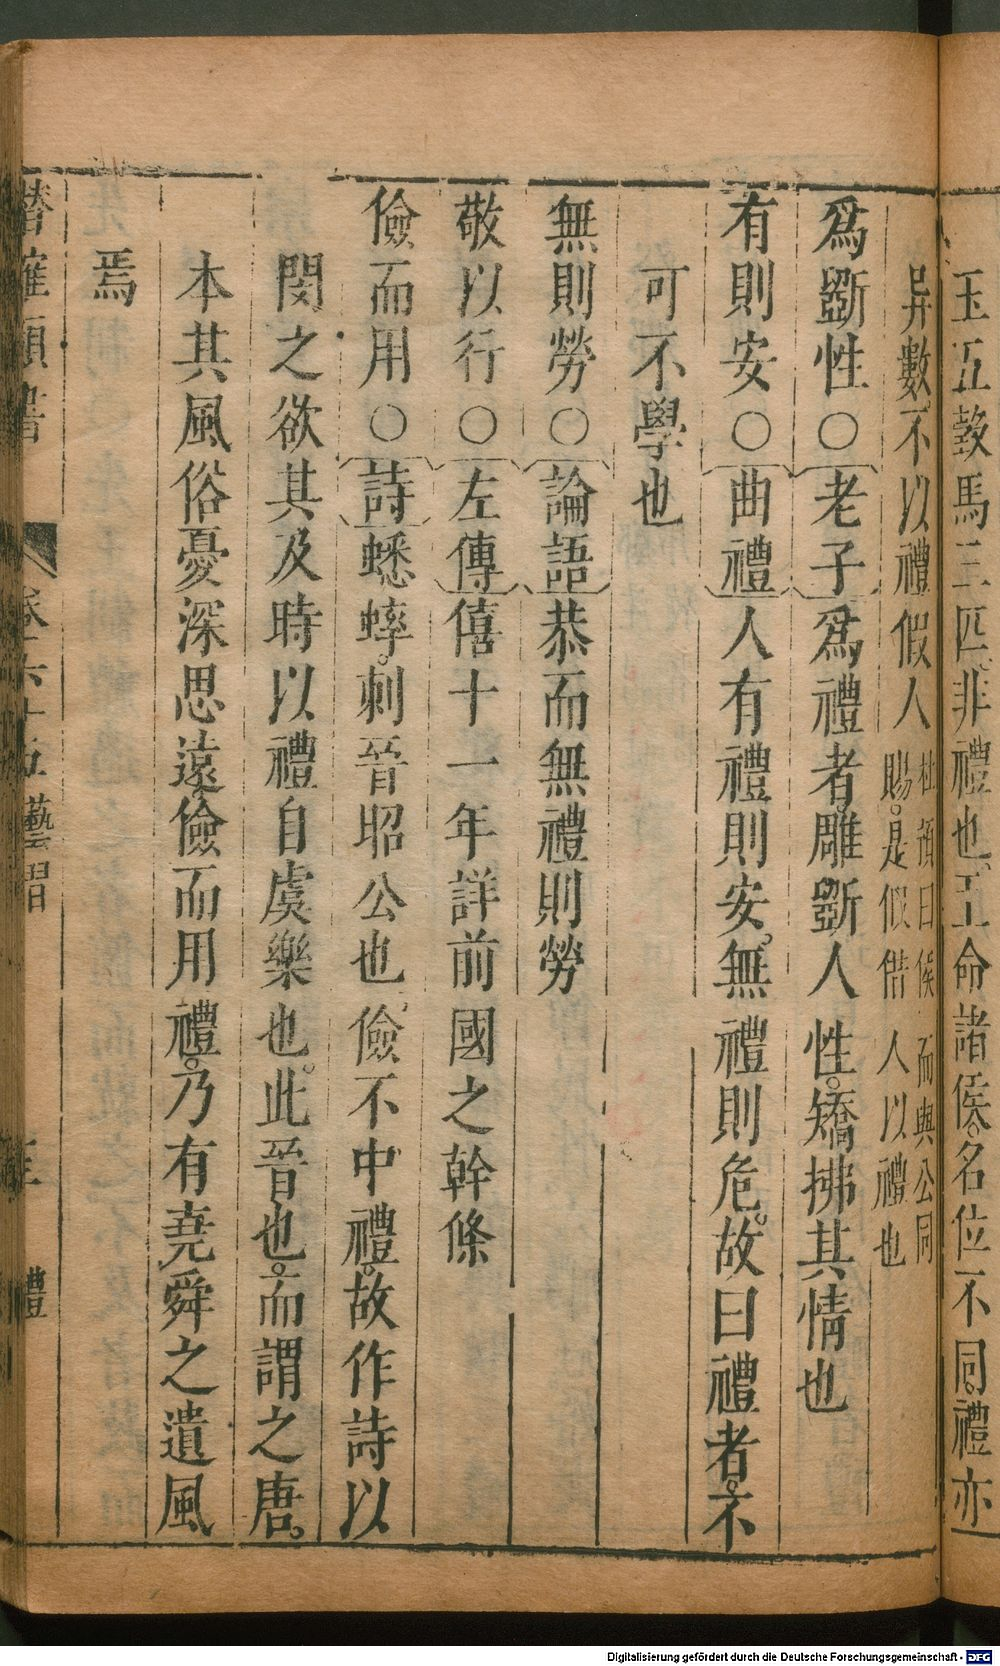 玉五瑴馬三匹非禮也王命諸侯名位不同禮亦
异數不以禮假人
杜預曰侯而與公同
賜是假借人以禮也
爲斵性○老子爲禮者雕斵人性矯拂其情也
有則安○曲禮人有禮則安無禮則危故曰禮者不
可不學也
無則勞○論語恭而無禮則勞
敬以行○左傳僖十一年詳前國之幹條
儉而用○詩蟋蟀刺晉昭公也儉不中禮故作詩以
閔之欲其及時以禮自虞樂也此晉也而謂之唐
本其風俗憂深思遠儉而用禮乃有堯舜之遺風
焉
潛確類書 卷六十五藝習 三 禮
Digitalisierung gefördert durch die Deutsche Forschungsgemeinschaft - DFG